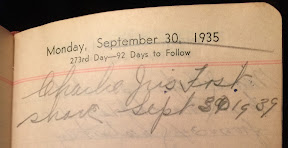 Monday, September 30, 1935
273rd Day—92 Days to Follow
Charlie Jr's First
shave Sept 30 1939